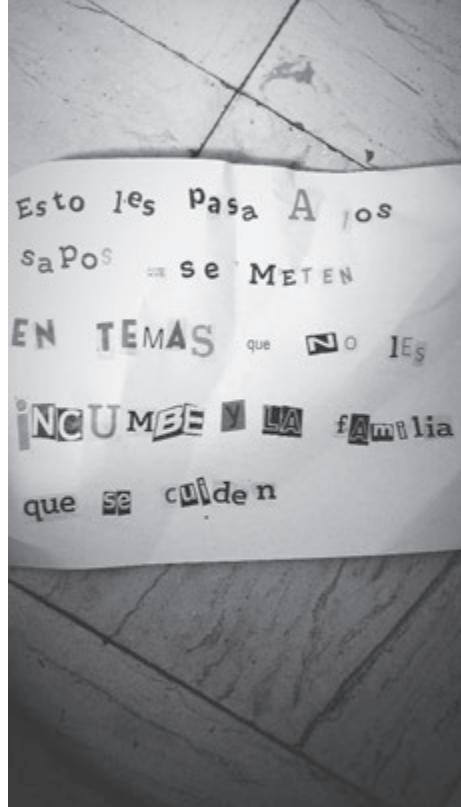 Esto les pasa A los
sapos se METEN
EN TEMAS que No lEs
iNCUMBE Y LA fAmilia
que se cuiden